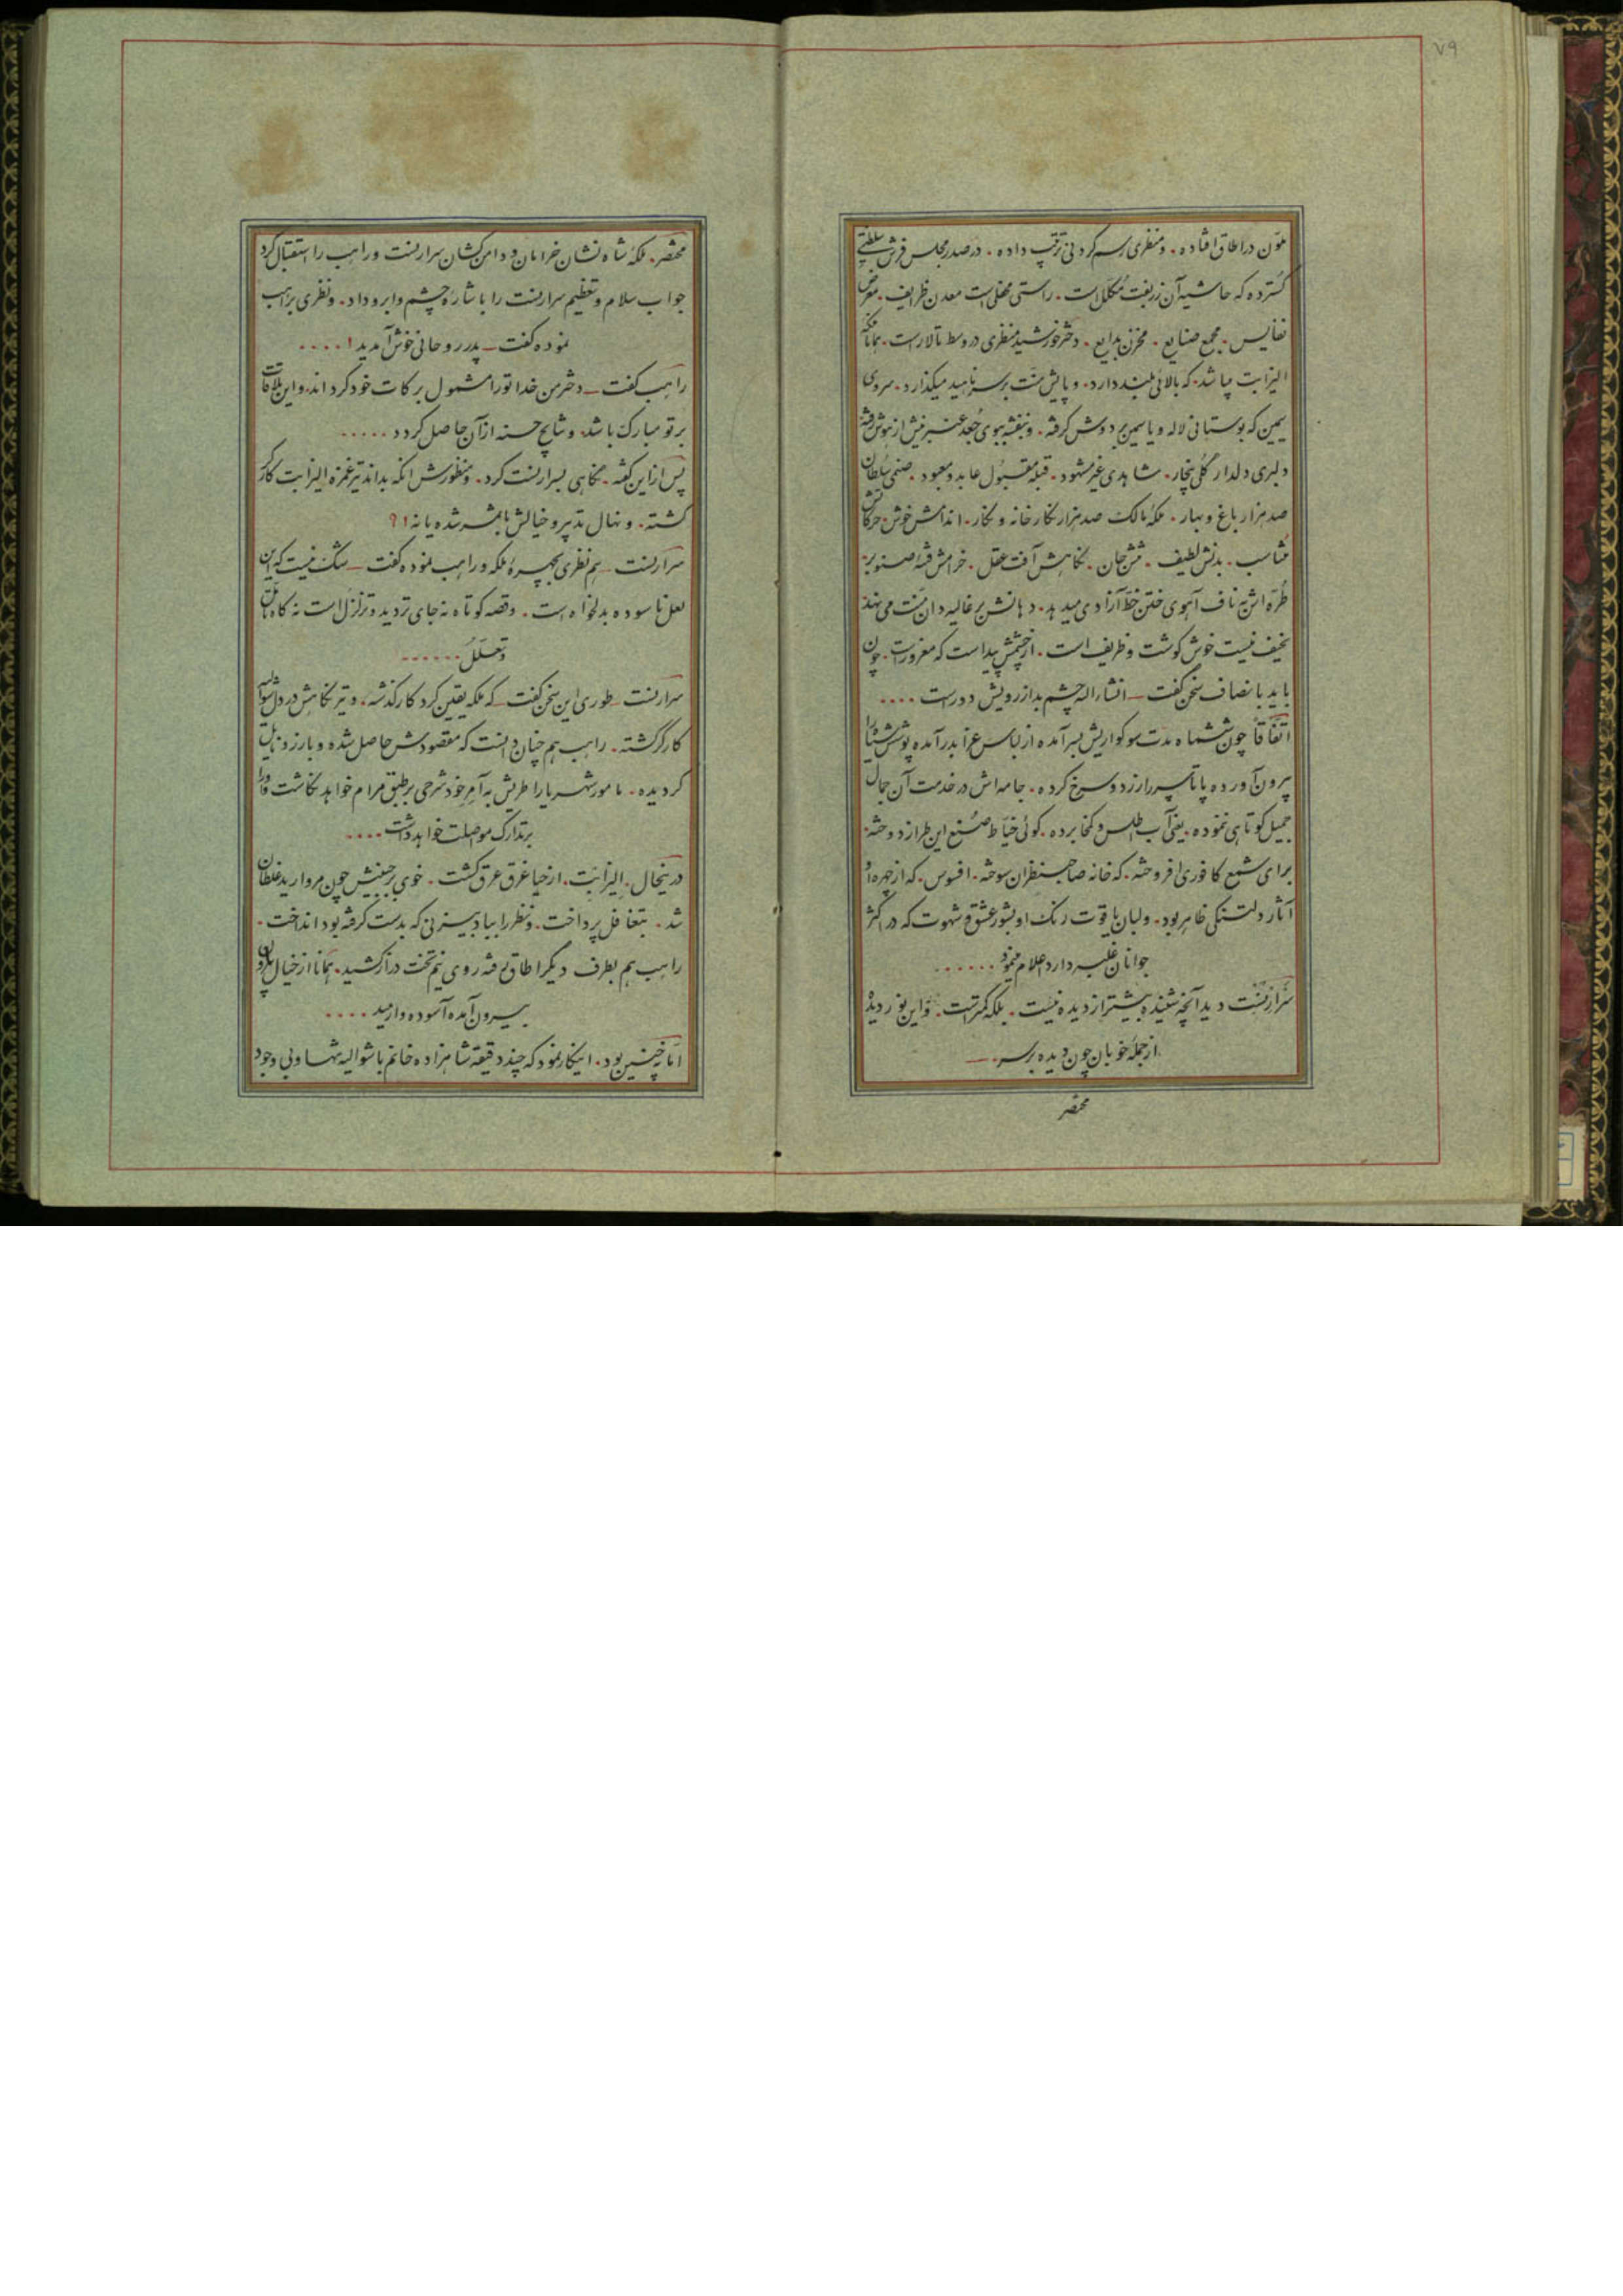 ۷۹
ملوّن در اطاق افتاده . و منظری رسم کردنی ترتیب داده . در صدر مجلس فرش سلطنتی
گسترده که حاشیه آن زربفت مکلل است . راستی محفلی است معدن ظرایف . معرض
نفایس . مجمع صنایع . مخزن بدایع . دختر خورشید منظری در وسط تالار است . همانا ملکه
الیزابت میباشد . که بالائی بلند دارد . و پایش منّت بر سر ناهید میگذارد . سروی
سیمین که بوستانی لاله و یاسمین بر دوش گرفته . و بنفشه ببوی جُعد عنبرینش از هوش رفته
دلبری دلدار گلی بیخار . شاهدی غیر مشهود . قبله مقبول عابد و معبود . صنمی سلطان
صد هزار باغ و بهار . ملکه مالک صد هزار نگارخانه و نگار . اندامش خوش . حرکاتش
مُتناسب . بدنش لطیف . تنش جان . نگاهش آفت عقل . خرامش فتنه صنوبر .
طُرّه اش به ناف آهوی ختن خطّ آزادی میدهد . دهانش بر غالیه دان منّت می نهد
نحیف نیست خوش گوشت و ظریف است . از چشمش پیداست که مغرور است . چون
باید بانصاف سخن گفت ـ انشاءاله چشم بد از رویش دور است ....
اتفاقاً چون ششماه مدّت سوگواریش بسر آمده از لباس عزا بدر آمده پوشش مشکین را
بیرون آورده پا تا سر را زرد و سرخ کرده . جامه اش در خدمت آن جمال
جمیل کوتاهی ننموده . یعنی آب اطلس و کمخا برده . گوئی خیّاط صُنع این طراز دوخته .
برای شمع کافوری افروخته . که خانه صاحبنظران سوخته . افسوس . که از چهره او
آثار دلتنگی ظاهر بود . و لبان یاقوت رنگ او بشور عشق و شهوت که در اکثر
جوانان غلبه دارد اعلام مینمود ......
سرارنست دید آنچه شنیده بیشتر از دیده نیست . بلکه کمتر است . و این نور دیده
از جمله خوبان چون دیده بر سر . ـ
محضر
محضر . ملکه شاه نشان خرامان و دامن کشان سرارنست و راهب را استقبال کرد
جواب سلام و تعظیم سرارنست را باشاره چشم و ابرو داد . و نظری براهب
نموده گفت ـ پدر روحانی خوش آمدید! ....
راهب گفت ـ دختر من خدا تو را مشمول برکات خود گرداند . و این ملاقات
بر تو مبارک باشد . و نتایج حسنه از آن حاصل گردد .....
پس از این گفته . نگاهی بسرارنست کرد . و منظورش انکه بداند تیر غمزه الیزابت کارگر
گشته . و نهال تدبیر و خیالش با ثمر شده یا نه !؟
سرارنست ـ هم نظری بچهره ملکه و راهب نموده گفت ـ شک نیست که این
لعل ناسوده بدلخواه است . و قصه کوتاه نه جای تردید و تزلزل است نه گاه تأمّل
و تعلّل ......
سرارنست ـ طوری این سخن گفت ـ که ملکه یقین کرد کار گذشته . و تیر نگاهش در دل شوالیه
کارگر گشته . راهب هم چنان دانست که مقصودش حاصل شده و بآرزو نایل
گردیده . مامور شهریار اطریش به آمر خود شرحی بر طبق مرام خواهد نگاشت و او را
بتدارک مواصلت خواهد داشت ....
درینحال . الیزابت . از حیا غرق عرق گشت . خوی بر جبینش چون مروارید غلطان
شد . بتغافل پرداخت . و نظر را ببادبیزنی که بدست گرفته بود انداخت .
راهب هم بطرف دیگر اطاق رفته روی نیم تخت دراز کشید . همانا از خیال
بیرون آمده آسوده وارمید ....
امّا نه چنین بود . اینکار نمود که چند دقیقه شاهزاده خانم با شوالیه تنها و بی وجود